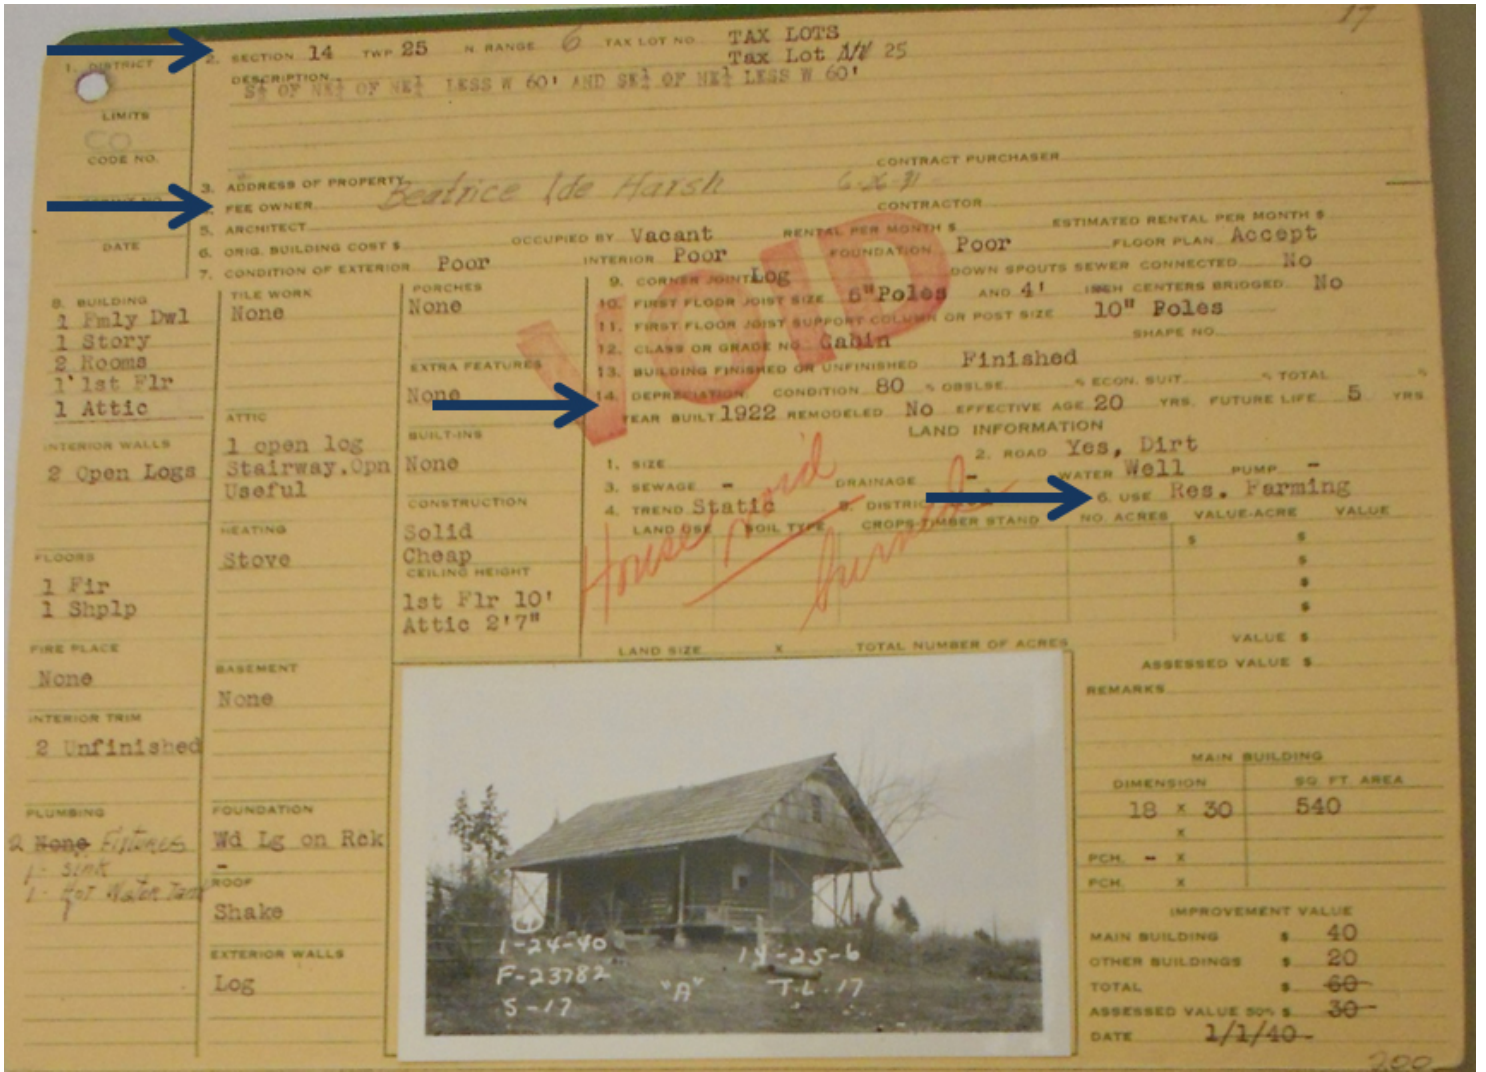 17
1. DISTRICT
LIMITS
CO
CODE NO.
DATE
2. SECTION 14 TWP 25 N. RANGE 6 TAX LOT NO. TAX LOTS
Tax Lot 25
DESCRIPTION
S½ OF NE¼ OF NE¼ LESS W 60' AND SE¼ OF NE¼ LESS W 60'
CONTRACT PURCHASER
3. ADDRESS OF PROPERTY
Beatrice Ide Harsh
FEE OWNER
CONTRACTOR
5. ARCHITECT
OCCUPIED BY Vacant RENTAL PER MONTH $ ESTIMATED RENTAL PER MONTH $
6. ORIG. BUILDING COST $
7. CONDITION OF EXTERIOR Poor INTERIOR Poor FOUNDATION Poor FLOOR PLAN Accept
VOID
8. BUILDING
1 Fmly Dwl
1 Story
2 Rooms
1 1st Flr
1 Attic
INTERIOR WALLS
2 Open Logs
FLOORS
1 Fir
1 Shplp
FIRE PLACE
None
INTERIOR TRIM
2 Unfinished
PLUMBING
2 None Fixtures
1- Sink
1- Hot Water Tank
TILE WORK
None
ATTIC
1 open log
Stairway.Opn
Useful
HEATING
Stove
BASEMENT
None
FOUNDATION
Wd Lg on Rck
-
ROOF
Shake
EXTERIOR WALLS
Log
PORCHES
None
EXTRA FEATURES
None
BUILT-INS
None
CONSTRUCTION
Solid
Cheap
CEILING HEIGHT
1st Flr 10'
Attic 2'7"
9. CORNER JOINT Log DOWN SPOUTS SEWER CONNECTED No
10. FIRST FLOOR JOIST SIZE 6"Poles AND 4' INCH CENTERS BRIDGED No
11. FIRST FLOOR JOIST SUPPORT COLUMN OR POST SIZE 10" Poles
12. CLASS OR GRADE NO. Cabin SHAPE NO.
13. BUILDING FINISHED OR UNFINISHED Finished
14. DEPRECIATION: CONDITION 80 % OBSLSE. % ECON. SUIT. % TOTAL %
YEAR BUILT 1922 REMODELED No EFFECTIVE AGE 20 YRS. FUTURE LIFE 5 YRS
LAND INFORMATION
1. SIZE 2. ROAD Yes, Dirt
3. SEWAGE - DRAINAGE - WATER Well PUMP -
4. TREND Static 5. DISTRICT 6. USE Res. Farming
LAND USE SOIL TYPE CROPS-TIMBER STAND NO. ACRES VALUE-ACRE VALUE
$ $
$
$
$
House
LAND SIZE X TOTAL NUMBER OF ACRES VALUE $
ASSESSED VALUE $
REMARKS
MAIN BUILDING
DIMENSION SQ. FT. AREA
18 X 30 540
X
PCH. - X
PCH. X
IMPROVEMENT VALUE
MAIN BUILDING $ 40
OTHER BUILDINGS $ 20
TOTAL $ 60
ASSESSED VALUE 50% $ 30
DATE 1/1/40
200
1-24-40
F-23782
S-17
"A"
14-25-6
T.L. 17